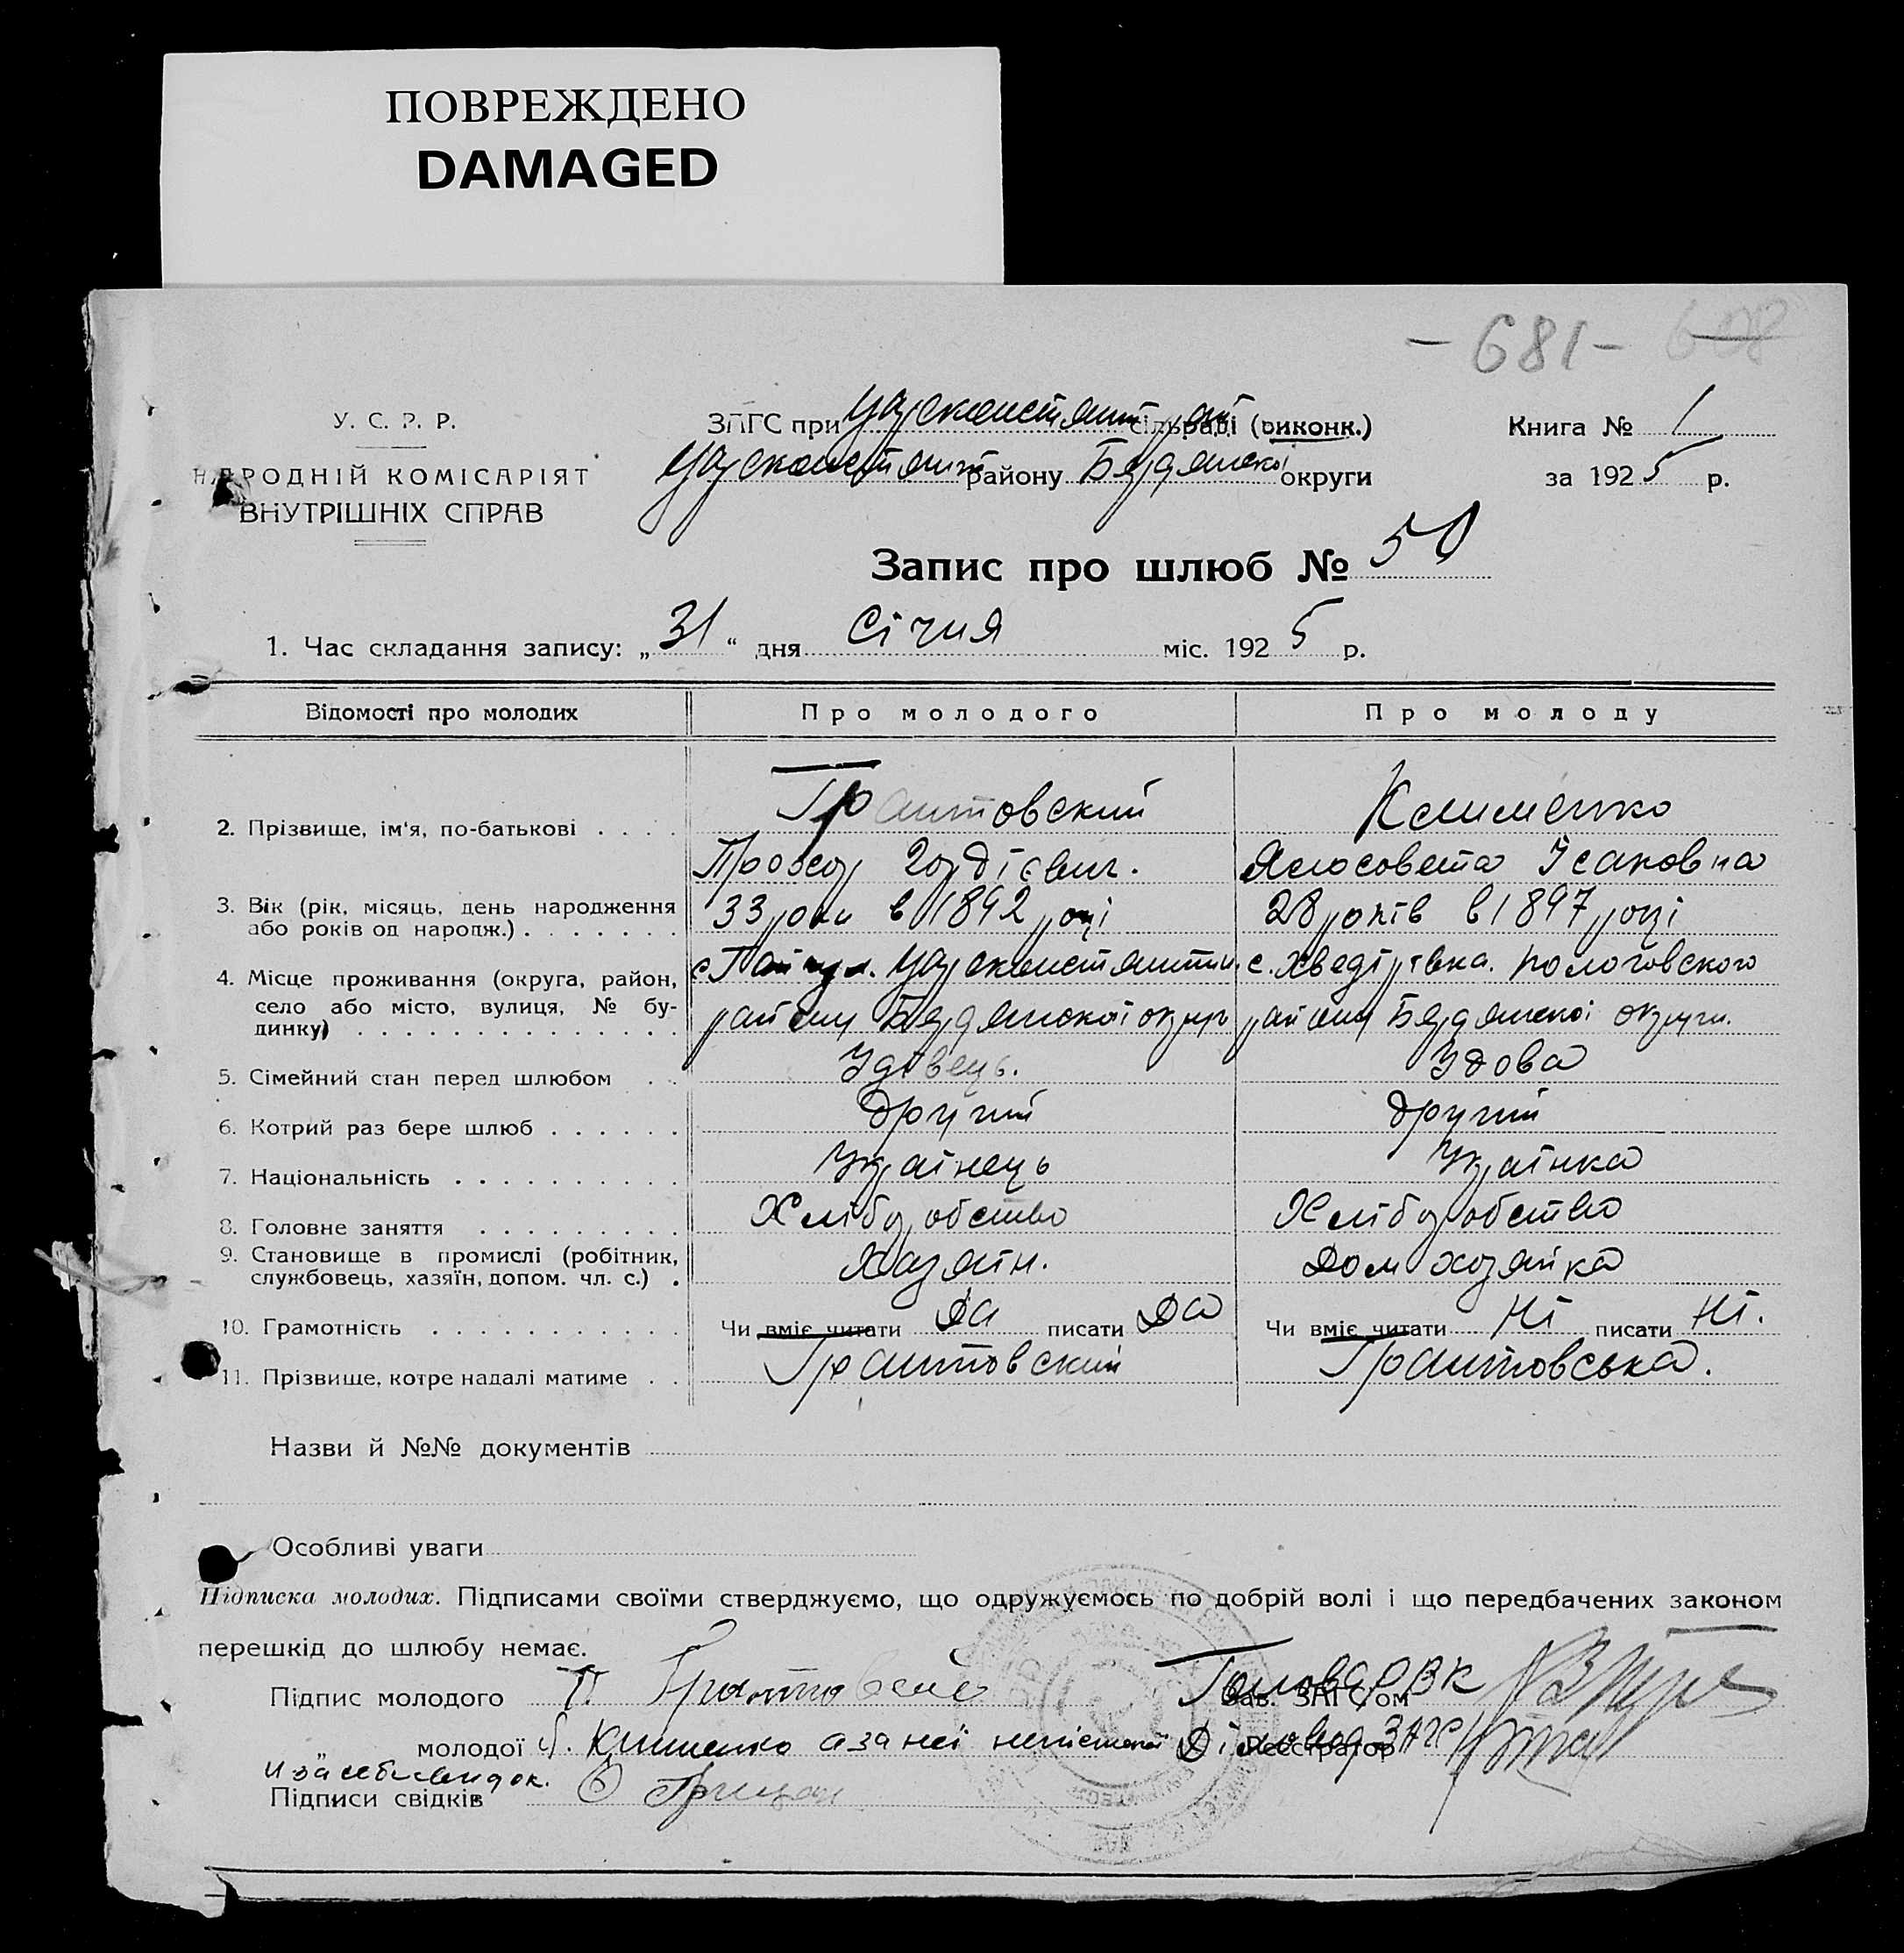 ПОВРЕЖДЕНО
DAMAGED
- 681 - 608
У. С. Р. Р.
НАРОДНІЙ КОМІСАРІЯТ
ВНУТРІШНІХ СПРАВ
ЗАГС при Царсконстянт сільраді (виконк.)
Царсконстянт району Бердянської округи
Книга № 1
за 1925 р.
Запис про шлюб № 50
1. Час складання запису: „31“ дня Січня міс. 1925 р.
Відомості про молодих Про молодого Про молоду
2. Прізвище, ім'я, по-батькові . . . . Грантовский Клименко
Прохор Гордієвич. Ялосовета Ісаковна
3. Вік (рік, місяць, день народження або років од народж.) . . . . . . . 33 роки в 1892 році 28 років в 1897 році
4. Місце проживання (округа, район, село або місто, вулиця, № будинку) . . . . . . . . . . . . . . с. Гайчул. Царсконстянтин. с. Хведірівка. Пологовского
району Бердянскої округ району Бердянскої округи.
5. Сімейний стан перед шлюбом . . Удівець. Удова
6. Котрий раз бере шлюб . . . . . . Другий Другий
7. Національність . . . . . . . . . . Українець Українка
8. Головне заняття . . . . . . . . . Хліборобство Хліборобство
9. Становище в промислі (робітник, службовець, хазяїн, допом. чл. с.) . Хазяїн. Дом хозяйка
10. Грамотність . . . . . . . . . . . Чи вміє читати Да писати Да Чи вміє читати Ні писати Ні.
11. Прізвище, котре надалі матиме . . Грантовский Грантовська.
Назви й №№ документів
Особливі уваги
Підписка молодих. Підписами своїми стверджуємо, що одружуємось по добрій волі і що передбачених законом
перешкід до шлюбу немає.
Підпис молодого П Грантовский Голова РВК
Зав. ЗАГС'ом
„ молодої Клименко а за неї неписьменої Діловод ЗАГС
Реєстратор
и за себе свидок.
Підписи свідків